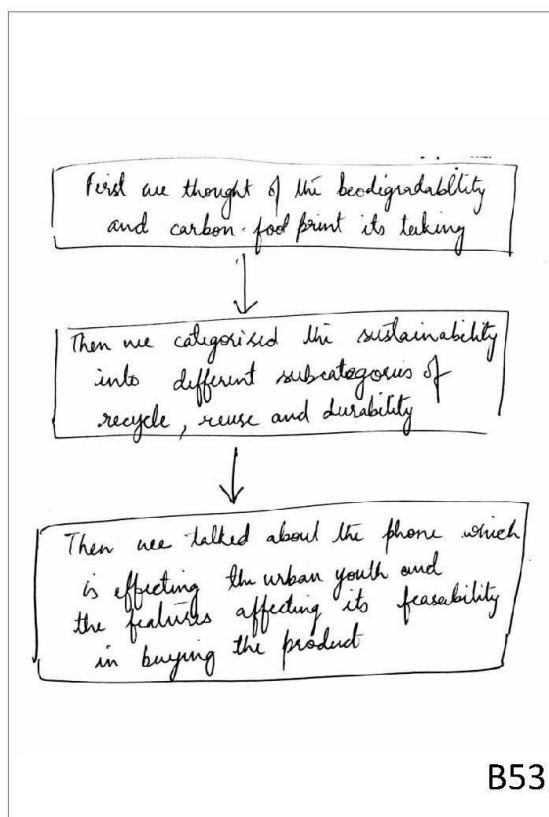 First we thought of the beodigradabltity
and carbon foot print its taking
Then we categorised the sustainability
into different subcategories of
recycle, reuse and durability
Then we talked about the phone which
is effecting the urban youth and
the features affecting its feasability
in buying the product
B53